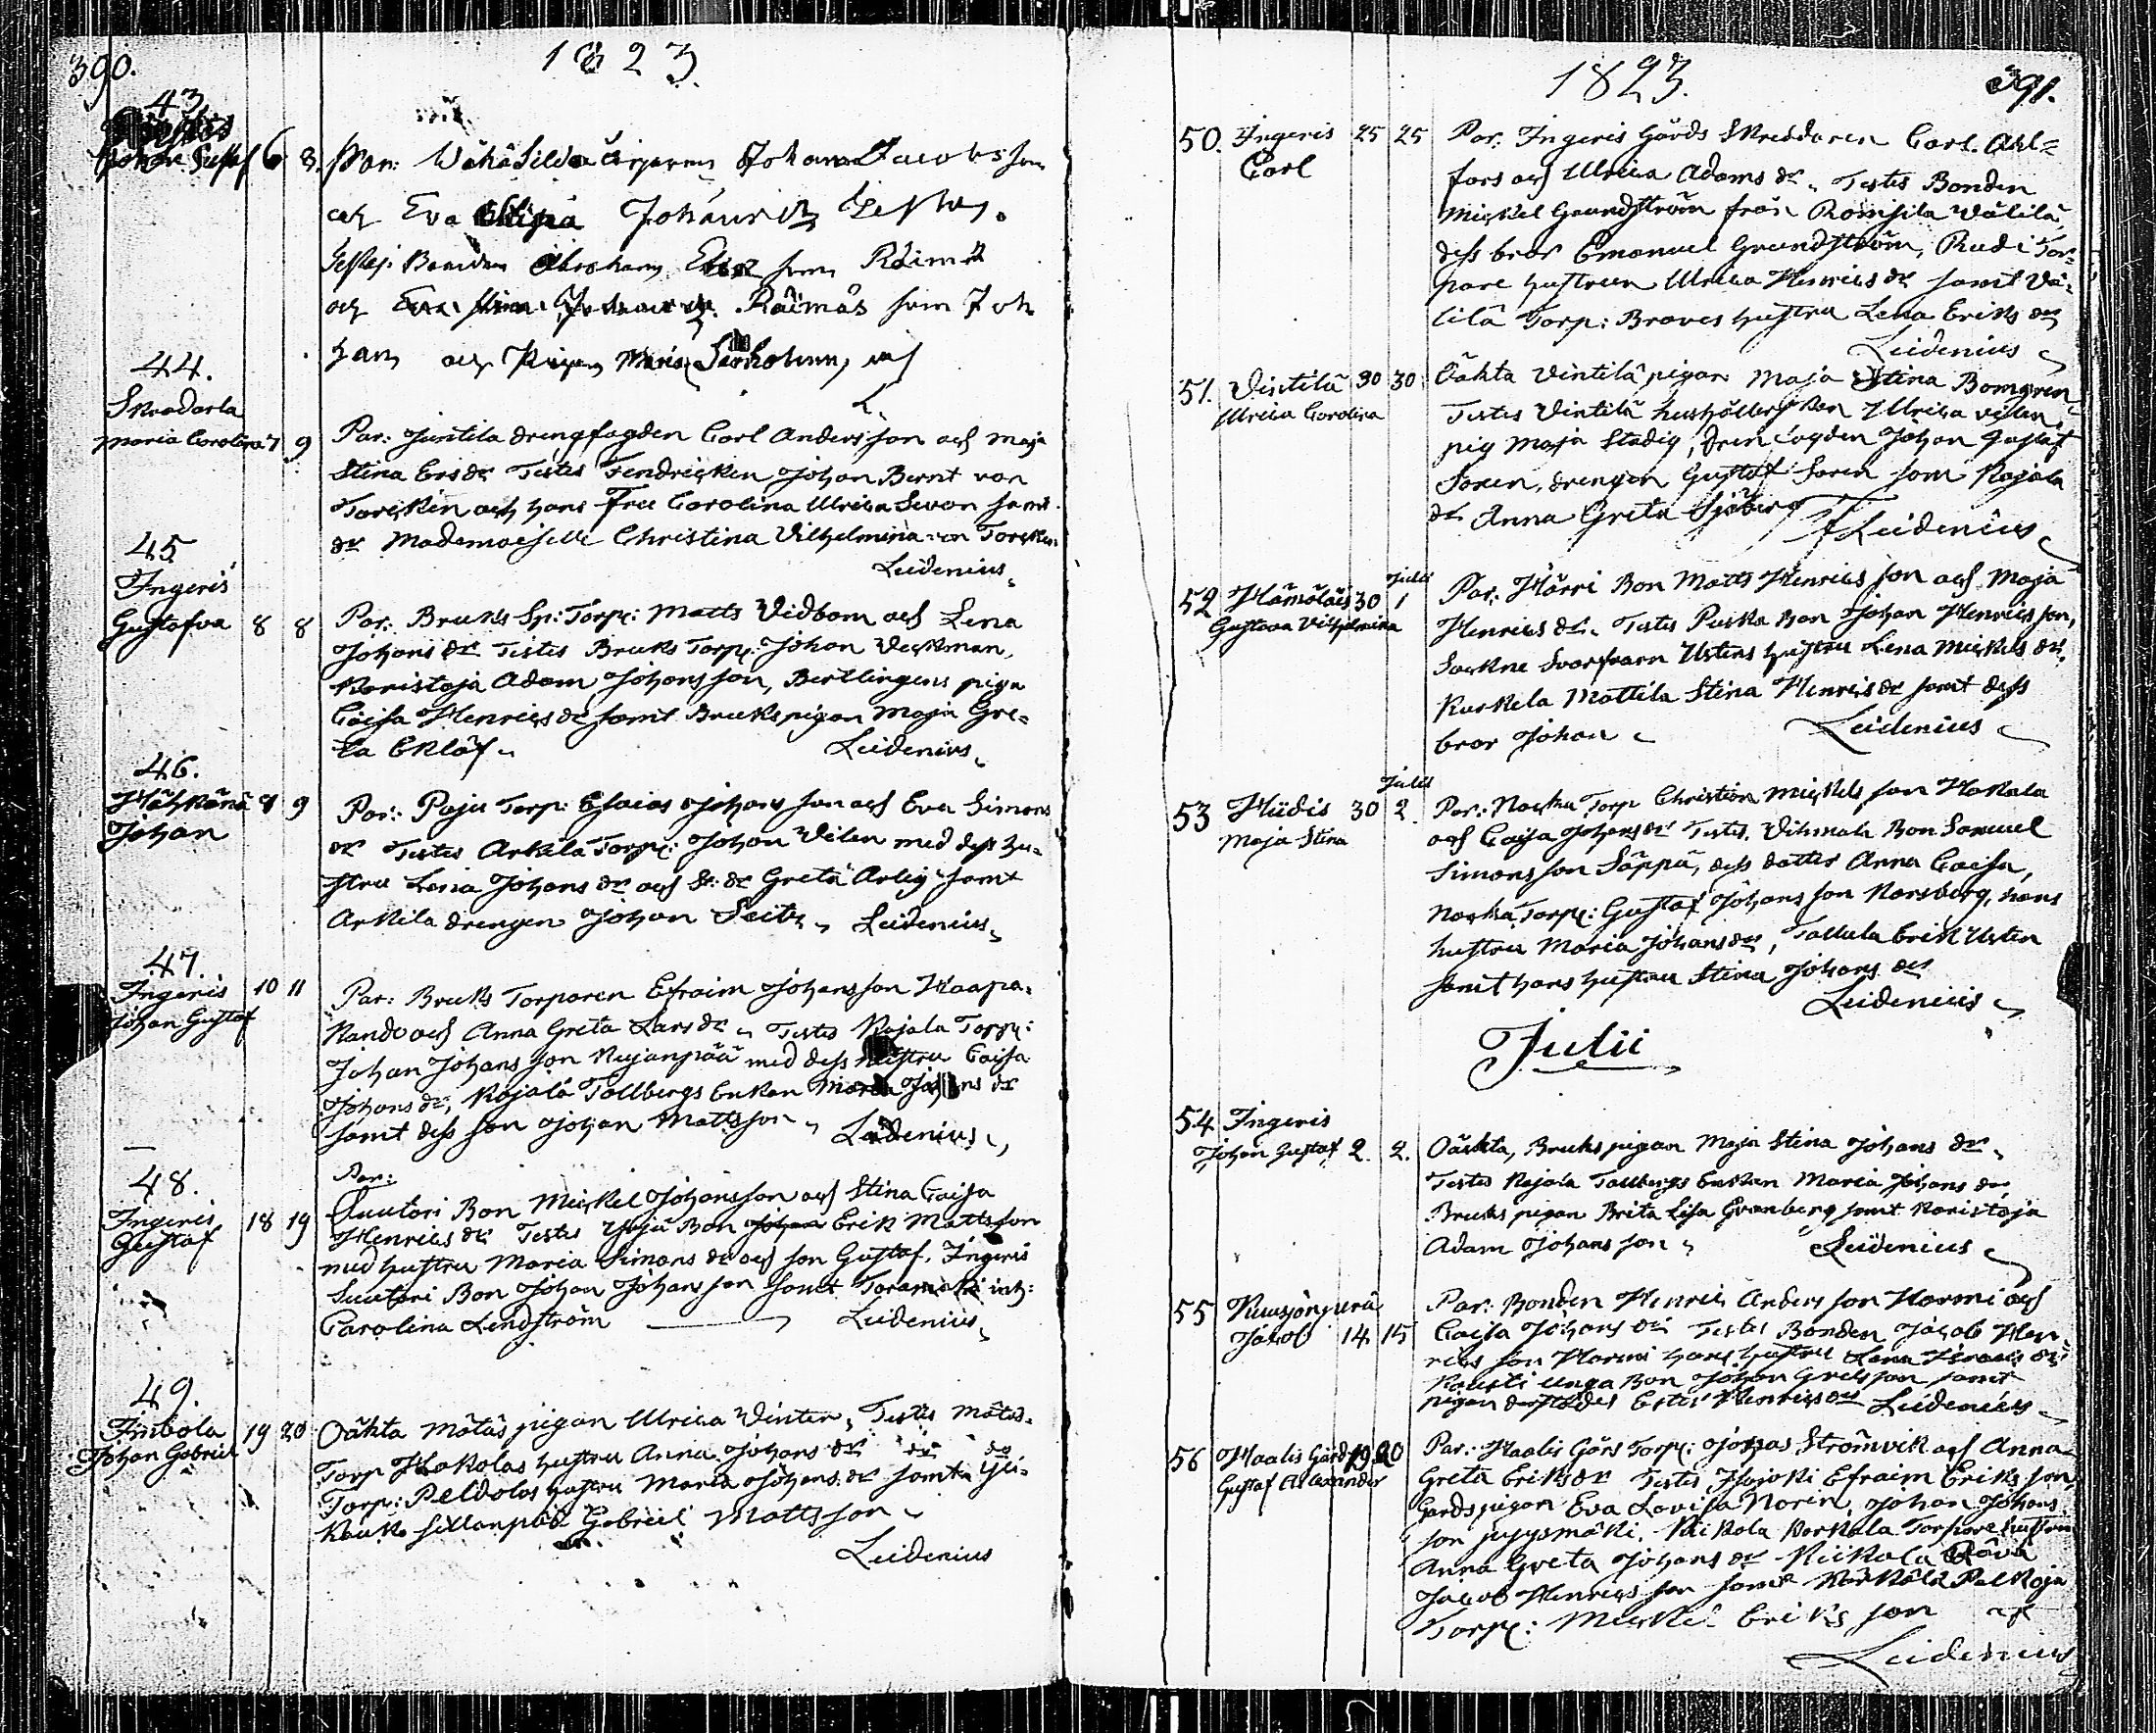 390.
1823.
43
Johan Gustaf 6 8. Par: Wähäsilda Torparen Johan Jacobsson
och Eva Johans dr Testes.
Testes: Bonden Abraham Raimå
och Eva Stina Raimås som Joh
han och Pigan Maria Serholmm
L.
44.
Skradarla
Maria Carolina 7 9 Par: Juntila drengfogden Carl Anders son och Maja
Stina Ersdr Testes Fendricken Johan Bernt von
Torcken och hans Fru Carolina Ulrica Sevon samt
dr Mademoiselle Christina Vilhelmina von Torcken
Leidenius
45
Ingeris
Gustafva 8 8 Par: Bruks Sp: Torp: Matts Vidbom och Lena
Johans dr Testes Bruks Torp: Johan Veckman,
Koristoja Adam Johansson, Bertlingens piga
Caisa Henrics dr samt Brukspigan Maja Gre-
ta Eklöf Leidenius
46.
Hähkänä 9 9 Par: Paju Torp: Esaias Johans son och Eva Simons
Johan
dr Testes Arkila Torp: Johan Vilen med dess hu-
stru Lena Johans dr och St: dr Greta Arlig samt
Arkila drengen Johan Seitz Leidenius
47.
Ingeris 10 11
Johan Gustaf
Par: Bruks Torparen Efraim Johansson Haapa-
kando och Anna Greta Larsdr Testes Rajala Torp:
Johan Johans son Kujanpää med dess hustru Caisa
Johans dr, Rajala Tallbergs Enkan Maria Johans dr
samt dess son Johan Mattsson Leidenius
48.
Par:
Ingeris 18 19 Suutari Bon Mickel Johansson och Stina Caisa
Gustaf
Henrics dr Testes Yrjä Bon Johan Erik Mattsson
med hustru Maria Simons dr och son Gustaf. Ingeris
Suutari Bon Johan Johans son samt Toramäki inh:
Carolina Lindström Leidenius
49.
Inbola 19 20 Oäkta Mätäs pigan Ulrica Vinter, Testes Mätäs
Johan Gabriel
Torp Hakolas hustru Anna Johans dr
Torp: Peldolas hustru Maria Johans dr samt Yli-
Kauko Sillanpää Gabriel Mattsson
Leidenius
1823. 391.
50. Ingeris 25 25 Par: Ingeris Gårds Skreddaren Carl Ahl-
Carl
fors och Ulrica Adams dr Testes Bonden
Mickel Grundström från Romsila Välilä,
dess bror Emanuel Grundström, Rudi Tor-
pare hustrun Ulrica Henrics dr samt Vä-
lilä Torp: Braves hustru Lena Eriks dr
Leidenius
51. Vintilä 30 30 Oäkta Vintilä pigan Maja Stina Bomgren
Ulrica Carolina
Testes Vintilä hushållerskan Ulrica
pig Maja Stadig, drenfogden Johan Gustaf
Saxen, drengen Gustaf Saren som Rajala
dr Anna Greta Sjöberg
Leidenius
52 Hämöläis 30 Julii 1 Par: Härri Bon Matts Henrics son och Maja
Gustava Vilhelmina
Henrics dr. Testes Puska Bon Johan Henricsson,
Sockne Svarfvarn Ustens hustru Lena Mickels dr.
Kuskela Mattila Stina Henrics dr samt dess
bror Johan Leidenius
53 Hiidis 30 Julii 2. Par: Nocka Torp Christian Mickels son Hakala
Maja Stina
och Caisa Johans dr Testes. Vihmala Bon Samuel
Simonsson Säppä, dess dotter Anna Caisa,
Nocka Torp: Gustaf Johans son Korsberg, hans
hustru Maria Johansdr, Tallula Erik Usten
samt hans hustru Stina Johans dr
Leidenius
Julii
54. Ingeris
Johan Gustaf 2. 2. Oäckta, Brukspigan Maja Stina Johans dr
Testes Rajala Tallbergs Enkan Maria Johans dr,
Bruks pigan Brita Lisa Granberg samt Koristoja
Adam Johans son Leidenius
55 Kuusjonperä
Jakob 14. 15 Par: Bonden Henric Anders son Harmi och
Caisa Johans dr Testes Bonden Jacob Hen-
rics son Harmi hans hustru Lena Israels dr
Rausti unga Bon Johan Grelsson samt
pigan derstädes Ester Henricsdr Leidenius
56 Haalis Gård 19. 20 Par: Haalis Gårs Torp: Jonas Strömvik och Anna
Gustaf Alexander
Greta Eriksdr Testes, Isojoki Efraim Eriks son,
Gardspigan Eva Lovisa Norin, Johan Johans
son Jyysmäki, Riikola Korkala Torpare hustru
Anna Greta Johans dr Riikola Räva
Jacob Henrics son samt Korkola Palkoja
Torp: Mickel Eriks son
Leidenius